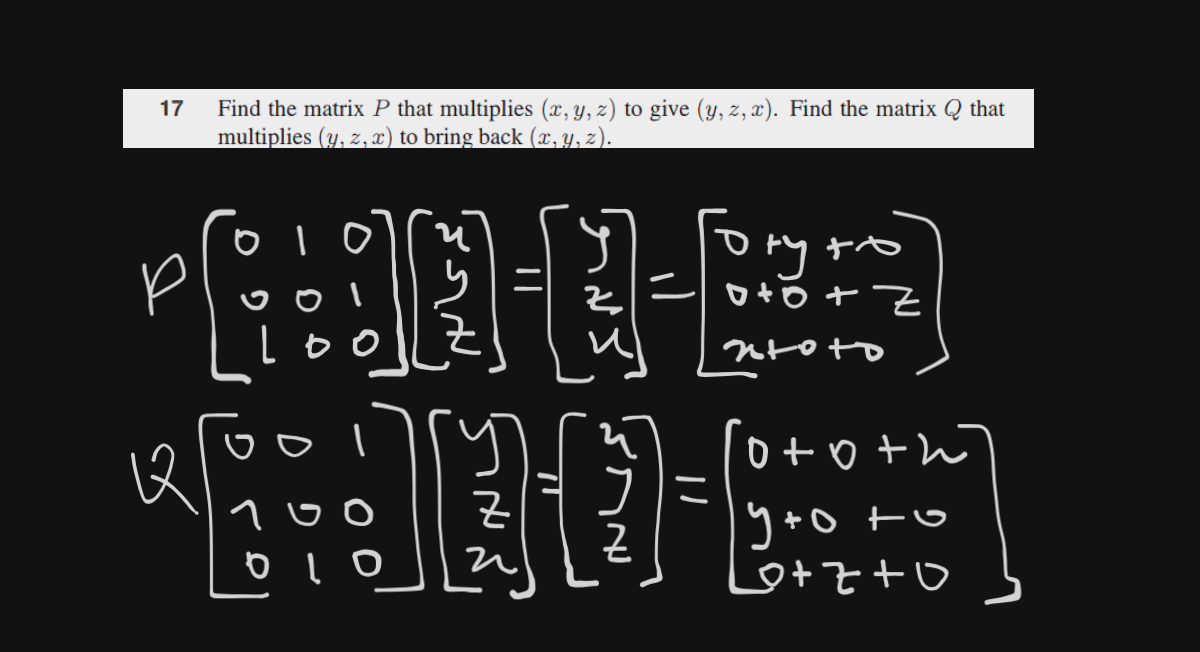 17 Find the matrix P that multiplies (x, y, z) to give (y, z, x). Find the matrix Q that
multiplies (y, z, x) to bring back (x, y, z).
P [0 1 0] [x] = [y] = [0 + y + 0]
[0 0 1] [y] [z] [0 + 0 + z]
[1 0 0] [z] [x] [x + 0 + 0]
Q [0 0 1] [y] = [x] = [0 + 0 + x]
[1 0 0] [z] [y] [y + 0 + 0]
[0 1 0] [x] [z] [0 + z + 0]